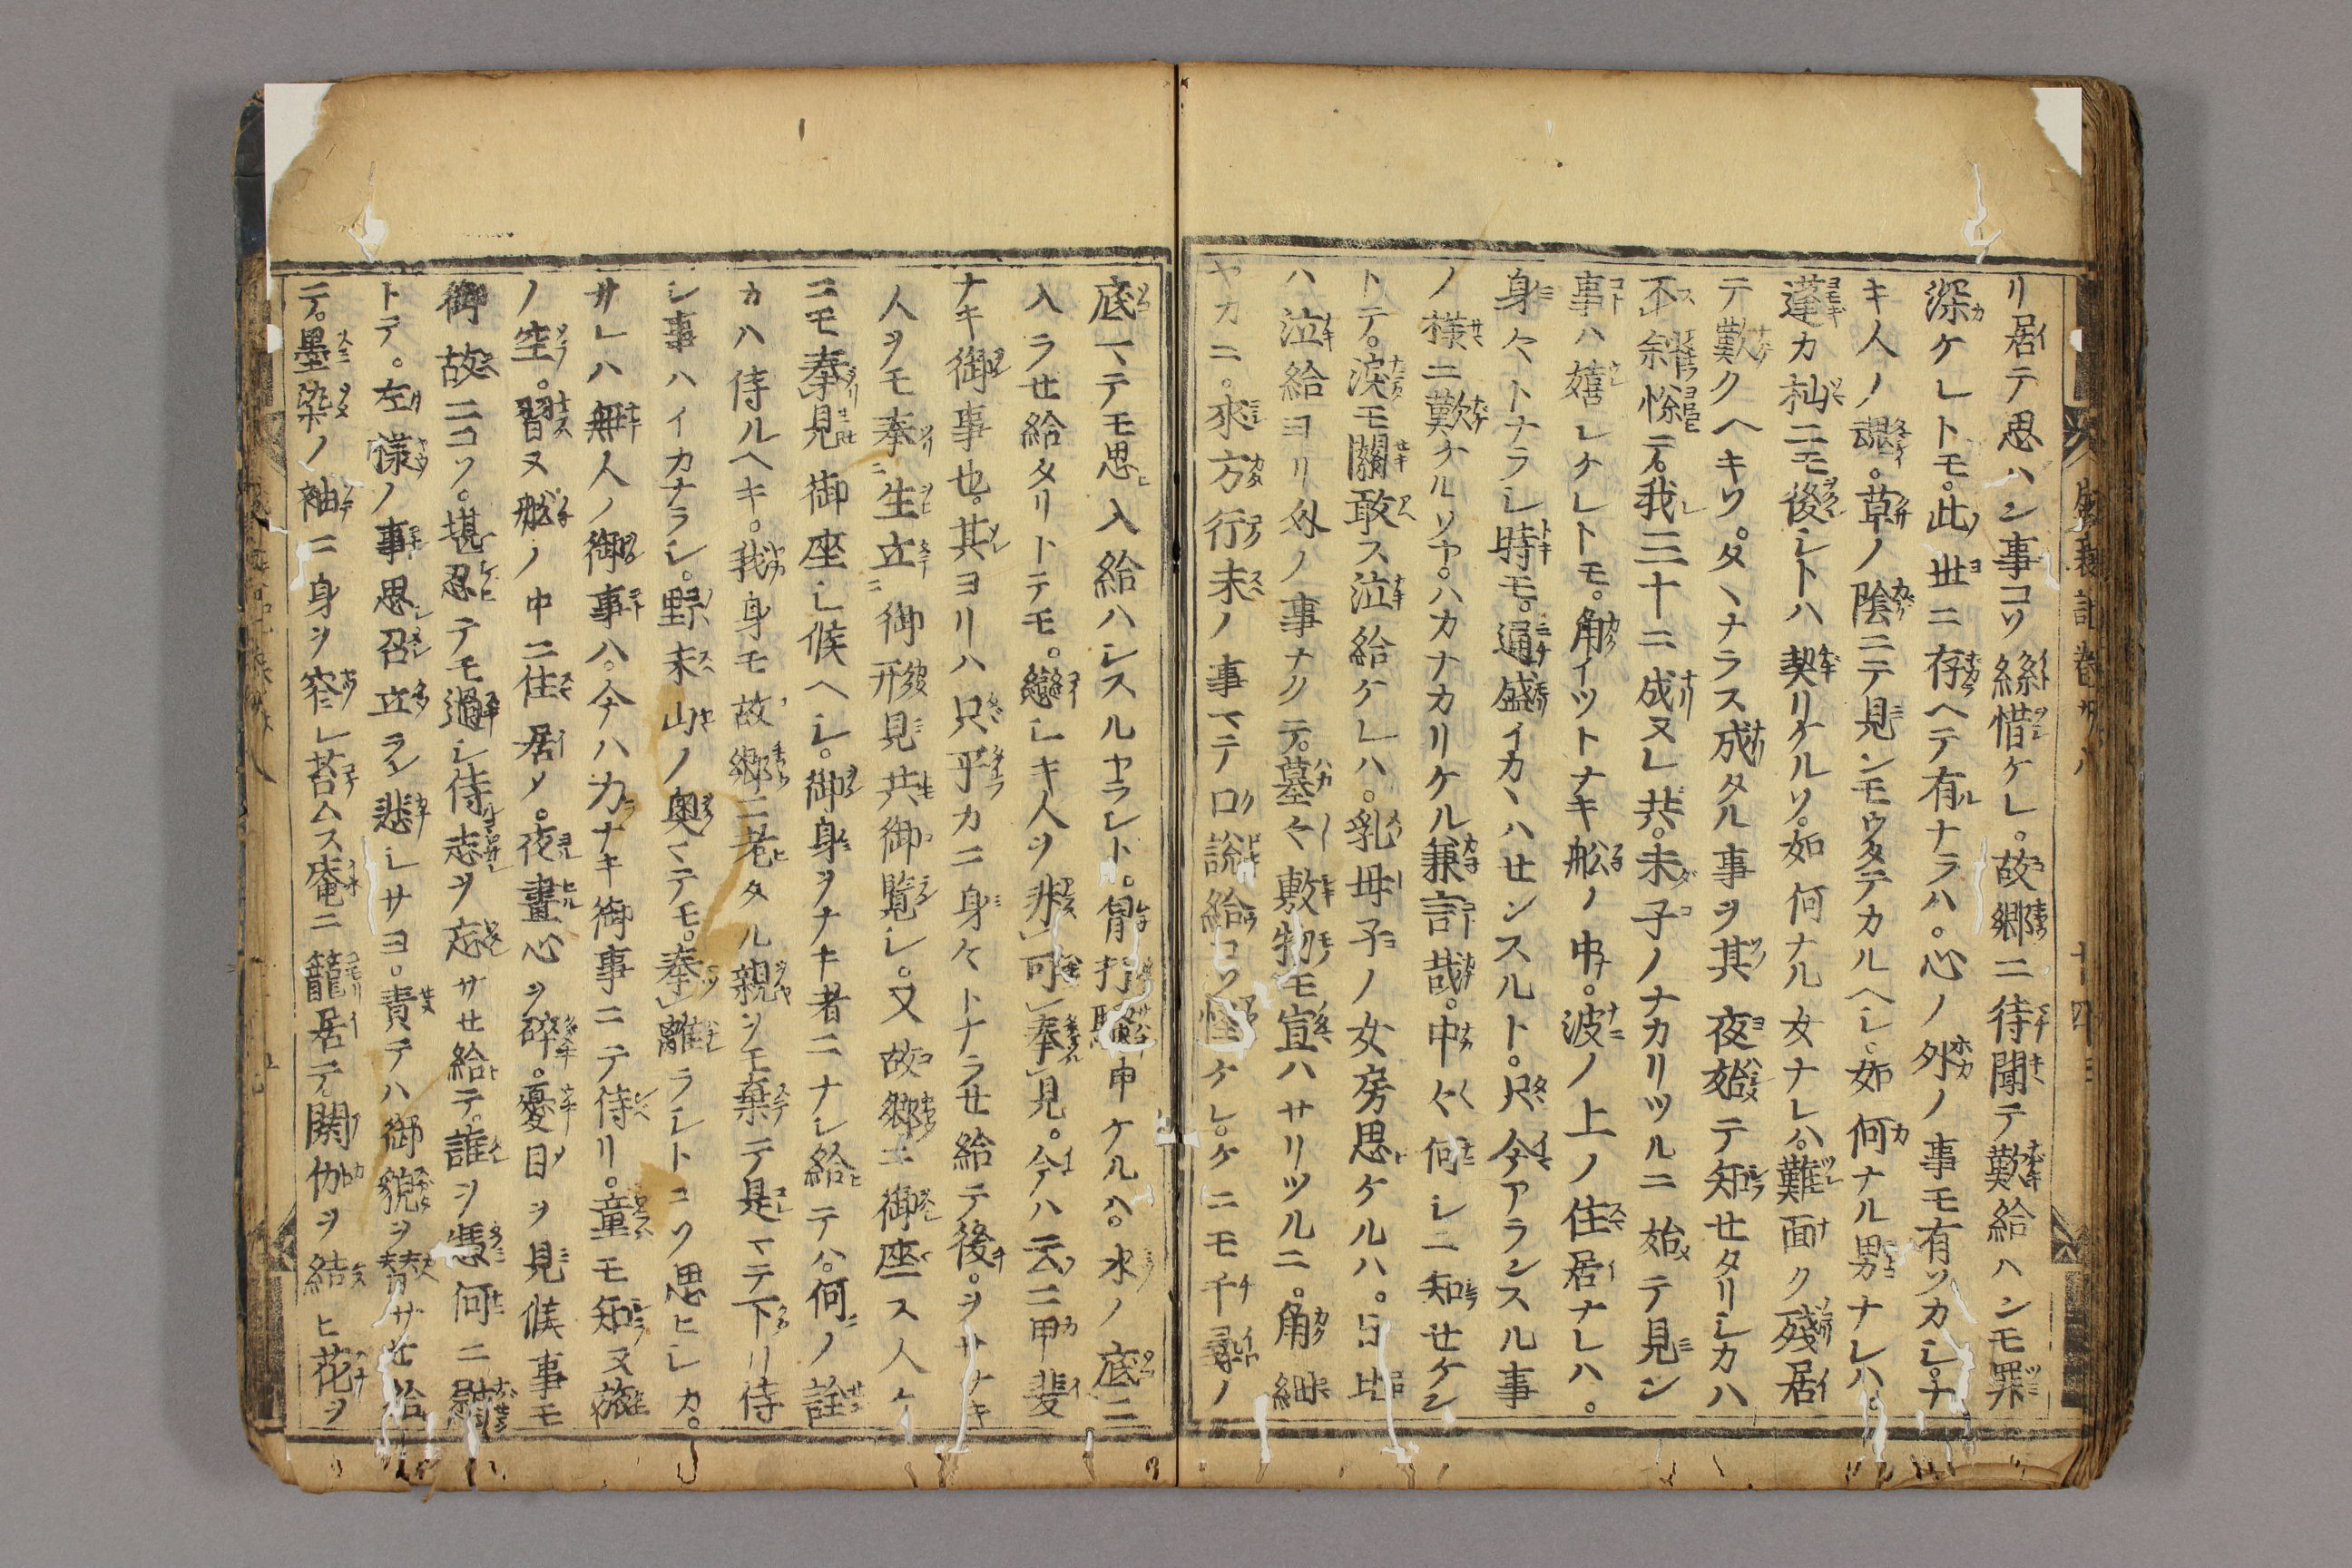 リ居テ思ハン事コソ絲惜ケレ。故郷ニ待聞テ歎給ハンモ罪
深ケレトモ。此世ニ存ヘテ有ナラハ。心ノ外ノ事モ有ソカシ。ナ
キ人ノ魂。草ノ陰ニテ見ンモウタテカルヘシ。如何ナル男ナレハ。
蓬カ杣ニモ後レシトハ契リケルソ。如何ナル女ナレハ。難面ク殘居
テ歎クヘキソ。タヽナラス成タル事ヲ其夜始テ知セタリシカハ
不斜悦テ。我三十ニ成ヌレ共。未子ノナカリツルニ始テ見ン
事ハ嬉シケレトモ。角イツトナキ舩ノ中。波ノ上ノ住居ナレハ。
身々トナラン時モ。通盛イカヽハセンスルト。只今アランスル事
ノ樣ニ歎ケルソヤ。ハカナカリケル兼言哉。中々何シニ知セケン
トテ。涙モ關敢ス泣給ケレハ。乳母子ノ女房思ケルハ。日比
ハ泣給ヨリ外ノ事ナクテ。墓々敷物モ宣ハサリツルニ。角細
ヤカニ。來方行末ノ事マテ口說給コソ怪ケレ。ケニモ千尋ノ
底マテモ思入給ハンスルヤラント。胷打騷申ケルハ。水ノ底ニ
入ラせ給タリトテモ。戀シキ人ヲ非可奉見。今ハ云ニ甲斐
ナキ御事也。其ヨリハ只平カニ身々トナラせ給テ後。ヲサナキ
人ヲモ奉生立御形見共御覽シ。又故郷ニ御座ス人々
ニモ奉見御座シ候ヘシ。御身ヲナキ者ニナシ給テハ。何ノ詮
カハ侍ルヘキ。我身モ故郷ニ老タル親ヲモ棄テ是マテ下リ侍
シ事ハイカナラン。野末山ノ奥マテモ。奉離ラシトコソ思ヒシカ。
サレハ無人ノ御事ハ。今ハ力ナキ御事ニテ侍リ。童モ知ヌ旅
ノ空。習ヌ舩ノ中ニ住居メ。夜晝心ヲ碎。憂目ヲ見候事モ
御故ニコソ。堪忍テモ過シ侍志ヲ忘サせ給テ。誰ヲ憑何ニ慰
トテ。左樣ノ事思召立ラン悲シサヨ。責テハ御貌ヲ替サせ給
テ。墨染ノ袖ニ身ヲ窄シ苔ムス庵ニ籠居テ。閼伽ヲ結ヒ花ヲ